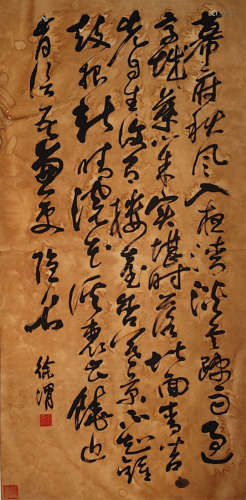 幕府秋風入夜清淡雲疏雨過
高城葉心朱實堪時落階面青苔
先自生復有樓臺銜暮景不勞鐘
鼓報新晴浣花溪裏花饒笑
肯信吾兼吏隱名
徐渭